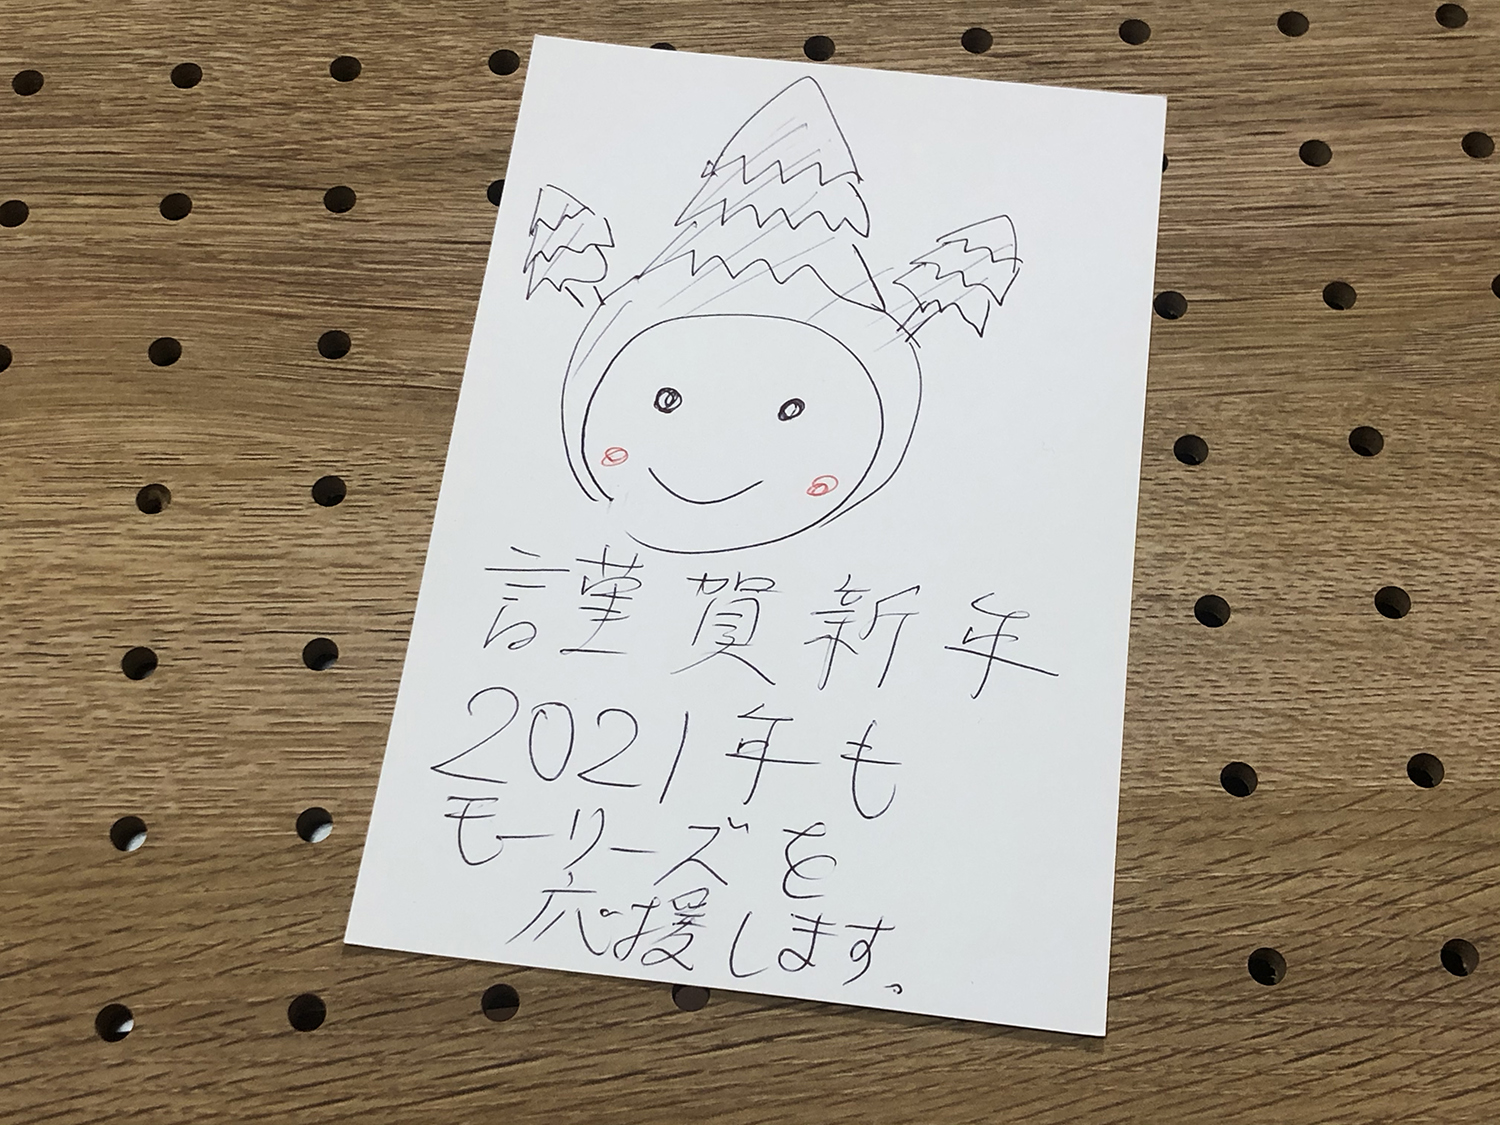 謹賀新年
2021年も
モーリーズを
応援します。